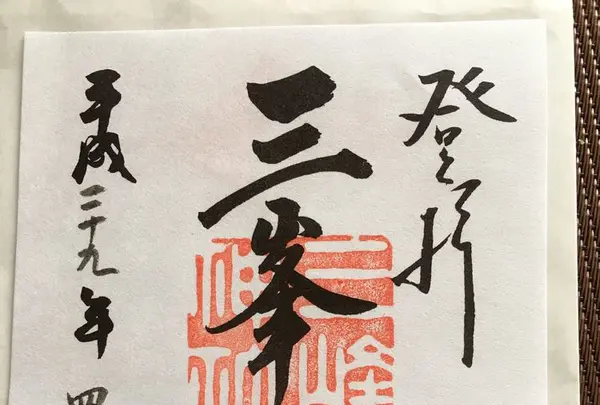 登拝
三峯
平成二十九年四